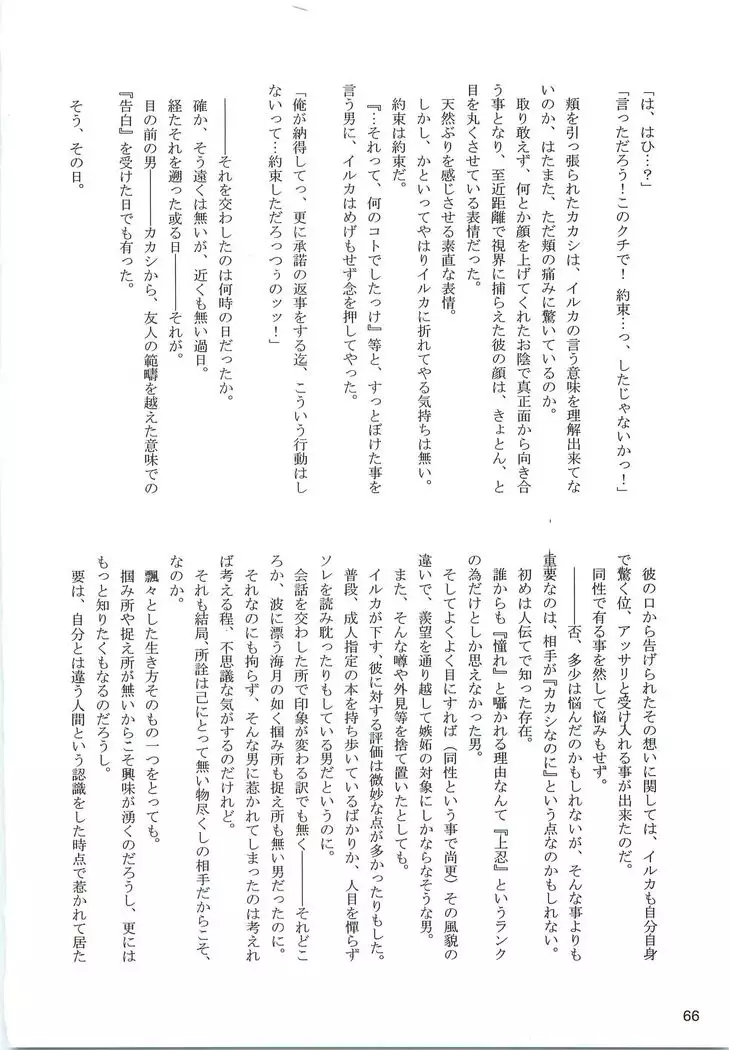 「は、はひ…？」
「言っただろう！このクチで！ 約束…っ、したじゃないかっ！」
頬を引っ張られたカカシは、イルカの言う意味を理解出来てな
いのか、はたまた、ただ頬の痛みに驚いているのか。
取り敢えず、何とか顔を上げてくれたお陰で真正面から向き合
う事となり、至近距離で視界に捕らえた彼の顔は、きょとん、と
目を丸くさせている表情だった。
天然ぶりを感じさせる素直な表情。
しかし、かといってやはりイルカに折れてやる気持ちは無い。
約束は約束だ。
『…それって、何のコトでしたっけ』等と、すっとぼけた事を
言う男に、イルカはめげもせず念を押してやった。
「俺が納得してっ、更に承諾の返事をする迄、こういう行動はし
ないって…約束しただろっつぅのッッ！」
――――それを交わしたのは何時の日だったか。
確か、そう遠くは無いが、近くも無い過日。
経たそれを遡った或る日――――それが。
目の前の男――――カカシから、友人の範疇を越えた意味での
『告白』を受けた日でも有った。
そう、その日。
彼の口から告げられたその想いに関しては、イルカも自分自身
で驚く位、アッサリと受け入れる事が出来たのだ。
同性で有る事を然して悩みもせず。
――――否、多少は悩んだのかもしれないが、そんな事よりも
重要なのは、相手が『カカシなのに』という点なのかもしれない。
初めは人伝てで知った存在。
誰からも『憧れ』と囁かれる理由なんて『上忍』というランク
の為だけとしか思えなかった男。
そしてよくよく目にすれば（同性という事で尚更）その風貌の
違いで、羨望を通り越して嫉妬の対象にしかならなそうな男。
また、そんな噂や外見等を捨て置いたとしても。
イルカが下す、彼に対する評価は微妙な点が多かったりもした。
普段、成人指定の本を持ち歩いているばかりか、人目を憚らず
ソレを読み耽ったりもしている男だというのに。
会話を交わした所で印象が変わる訳でも無く――――それどこ
ろか、波に漂う海月の如く掴み所も捉え所も無い男だったのに。
それなのにも拘らず、そんな男に惹かれてしまったのは考えれ
ば考える程、不思議な気がするのだけれど。
それも結局、所詮は己にとって無い物尽くしの相手だからこそ、
なのか。
飄々とした生き方そのもの一つをとっても。
掴み所や捉え所が無いからこそ興味が湧くのだろうし、更には
もっと知りたくもなるのだろうし。
要は、自分とは違う人間という認識をした時点で惹かれて居た
66